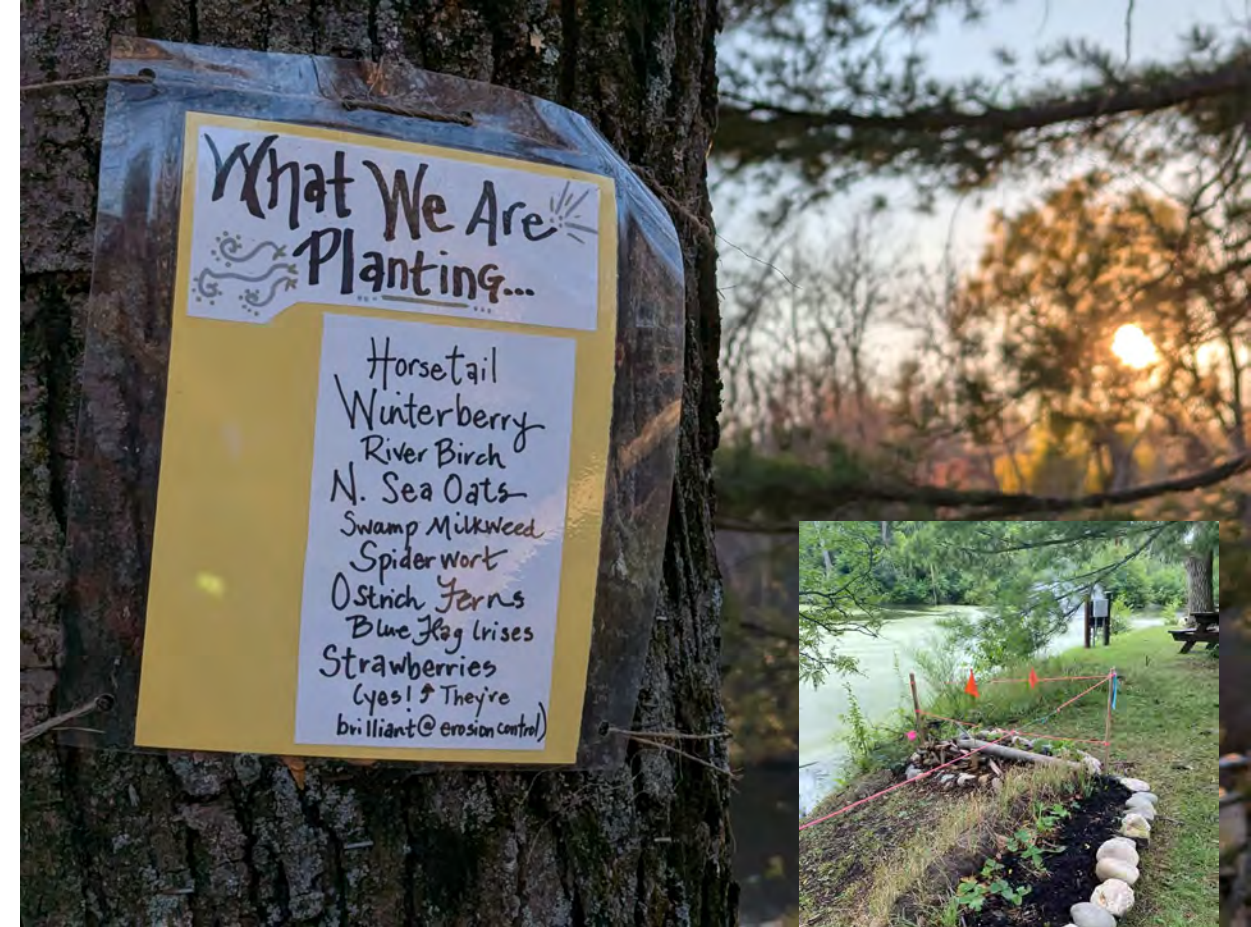 What We Are
Planting...
Horsetail
Winterberry
River Birch
N. Sea Oats
Swamp Milkweed
Spiderwort
Ostrich Ferns
Blue Flag Irises
Strawberries
(yes! They're
brilliant @ erosion control)